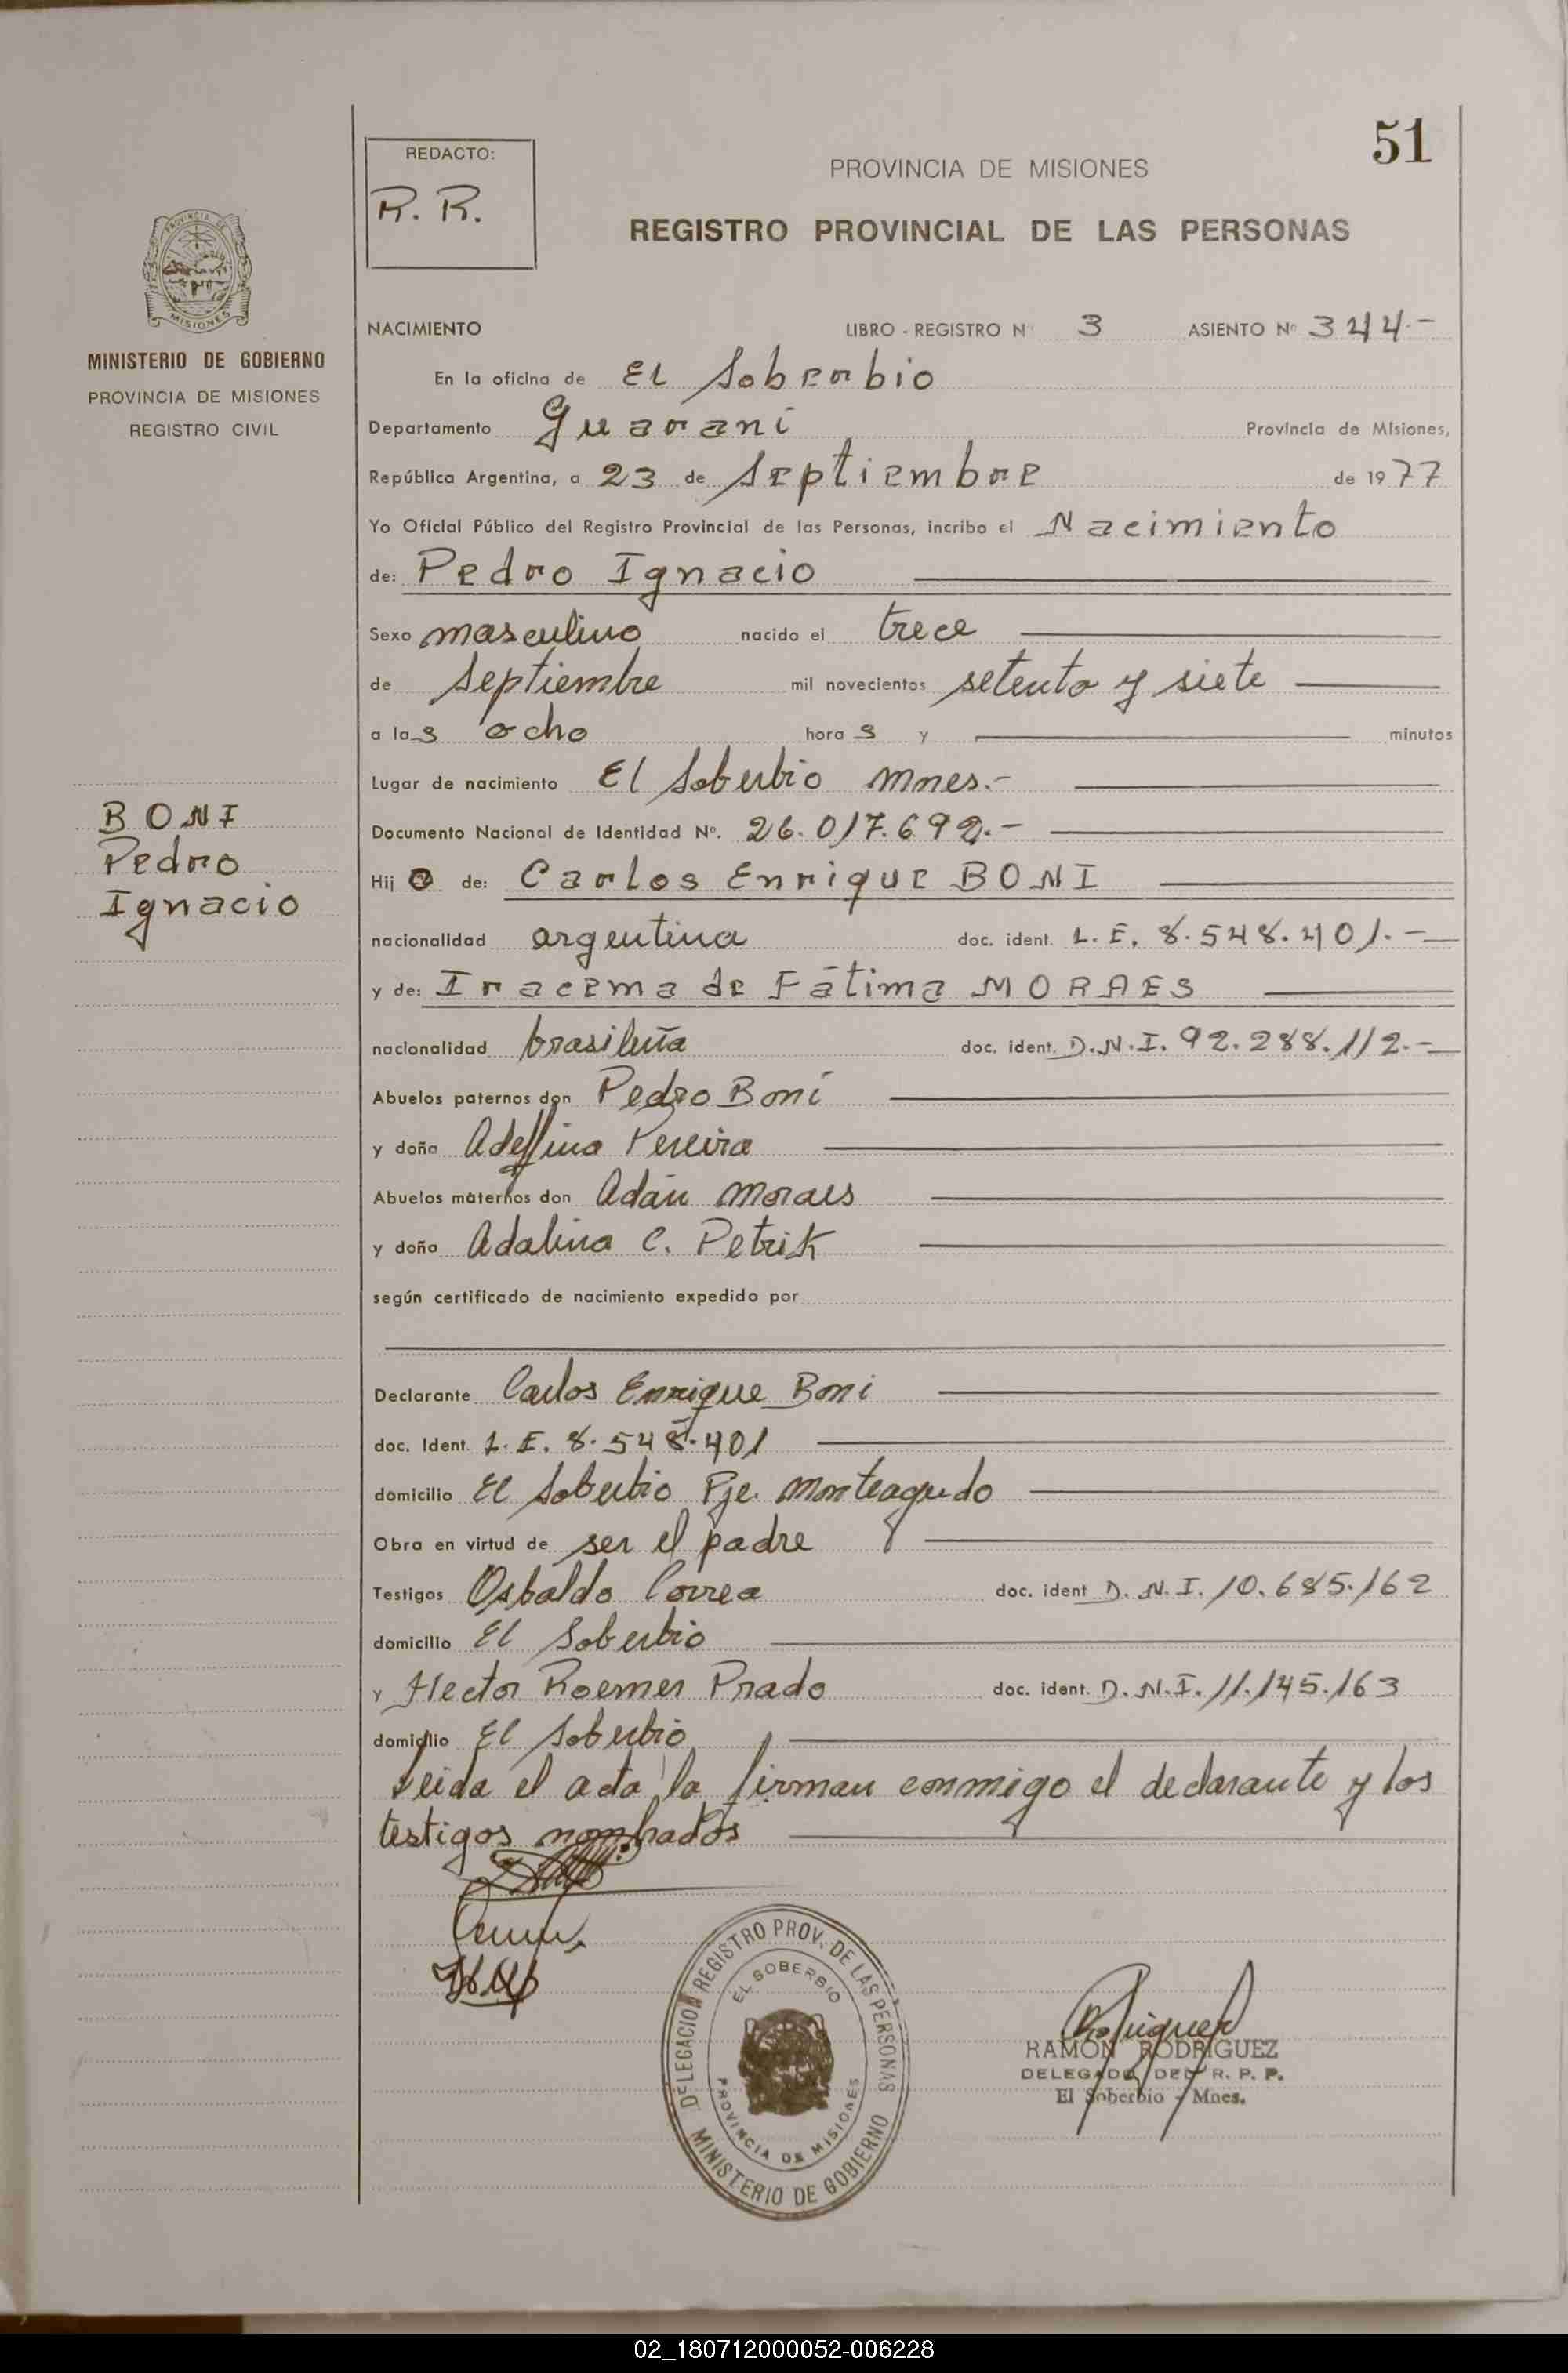 51
REDACTO:
R. R.
PROVINCIA DE MISIONES
REGISTRO PROVINCIAL DE LAS PERSONAS
PROVINCIA DE
MISIONES
MINISTERIO DE GOBIERNO
PROVINCIA DE MISIONES
REGISTRO CIVIL
BONI
Pedro
Ignacio
NACIMIENTO LIBRO - REGISTRO Nº 3 ASIENTO Nº 344.-
En la oficina de El Soberbio
Departamento Guaraní Provincia de Misiones,
República Argentina, a 23 de Septiembre de 1977
Yo Oficial Público del Registro Provincial de las Personas, incribo el Nacimiento
de: Pedro Ignacio
Sexo masculino nacido el trece
de Septiembre mil novecientos setenta y siete
a las ocho horas y minutos
Lugar de nacimiento El Soberbio Mnes.-
Documento Nacional de Identidad Nº. 26.017.692.-
Hijo de: Carlos Enrique BONI
nacionalidad argentina doc. ident. L. E. 8.548.401.-
y de: Iracema de Fátima MORAES
nacionalidad brasileña doc. ident. D.N.I. 92.288.112.-
Abuelos paternos don Pedro Boni
y doña Adelfina Pereira
Abuelos maternos don Adán Moraes
y doña Adalina C. Petrik
según certificado de nacimiento expedido por
Declarante Carlos Enrique Boni
doc. Ident. L. E. 8.548.401
domicilio El Soberbio Pje. Monteagudo
Obra en virtud de ser el padre
Testigos Osbaldo Correa doc. ident D. N. I. 10.685.162
domicilio El Soberbio
y Hector Roemer Prado doc. ident. D. N. I. 11.145.163
domicilio El Soberbio
Leida el acta la firman conmigo el declarante y los
testigos nombrados
DELEGACION REGISTRO PROV. DE LAS PERSONAS
EL SOBERBIO
PROVINCIA DE MISIONES
MINISTERIO DE GOBIERNO
RAMON RODRIGUEZ
DELEGADO DEL R. P. P.
El Soberbio - Mnes.
02_180712000052-006228